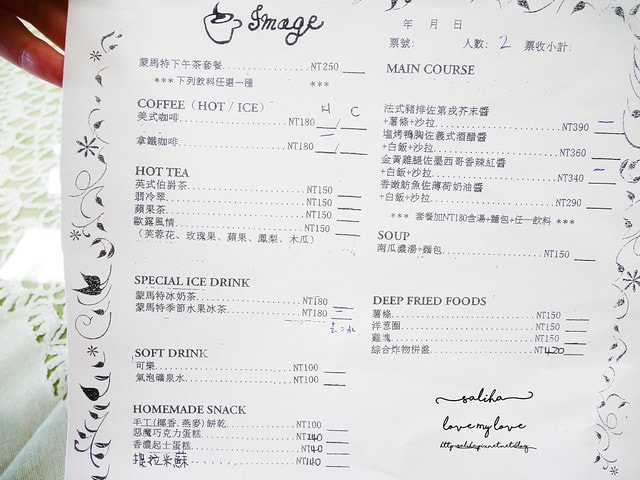 Image
年 月 日
票號: 人數: 2 票收小計:
蒙馬特下午茶套餐 NT250
*** 下列飲料任選一種 ***
COFFEE (HOT / ICE) H C
美式咖啡 NT180 /
拿鐵咖啡 NT180 /
HOT TEA
英式伯爵茶 NT150
翡冷翠 NT150
蘋果茶 NT150
歐露風情 NT150
(芙蓉花、玫瑰果、蘋果、鳳梨、木瓜)
SPECIAL ICE DRINK
蒙馬特冰奶茶 NT180
蒙馬特季節水果冰茶 NT180
SOFT DRINK
可樂 NT100
氣泡礦泉水 NT100
HOMEMADE SNACK
手工(椰香.燕麥)餅乾 NT100
惡魔巧克力蛋糕 NT140
香濃起士蛋糕 NT140
提拉米蘇 NT140
MAIN COURSE
法式豬排佐第戎芥末醬
+薯條+沙拉 NT390
塩烤鴨胸佐義式酒醋醬
+白飯+沙拉 NT360
金黃雞腿佐墨西哥香辣紅醬
+白飯+沙拉 NT340
香嫩魴魚佐薄荷奶油醬
+白飯+沙拉 NT290
*** 套餐加NT180含湯+麵包+任一飲料 ***
SOUP
南瓜濃湯+麵包 NT150
DEEP FRIED FOODS
薯條 NT150
洋蔥圈 NT150
雞塊 NT150
綜合炸物拼盤 NT420
saliha
love my love